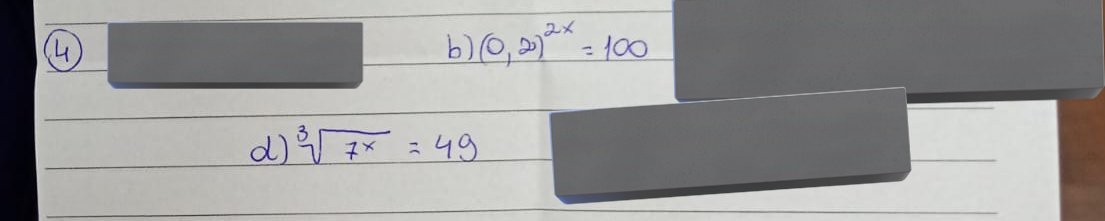 ④ b) (0,2)^{2x} = 100
d) \sqrt[3]{7^x} = 49